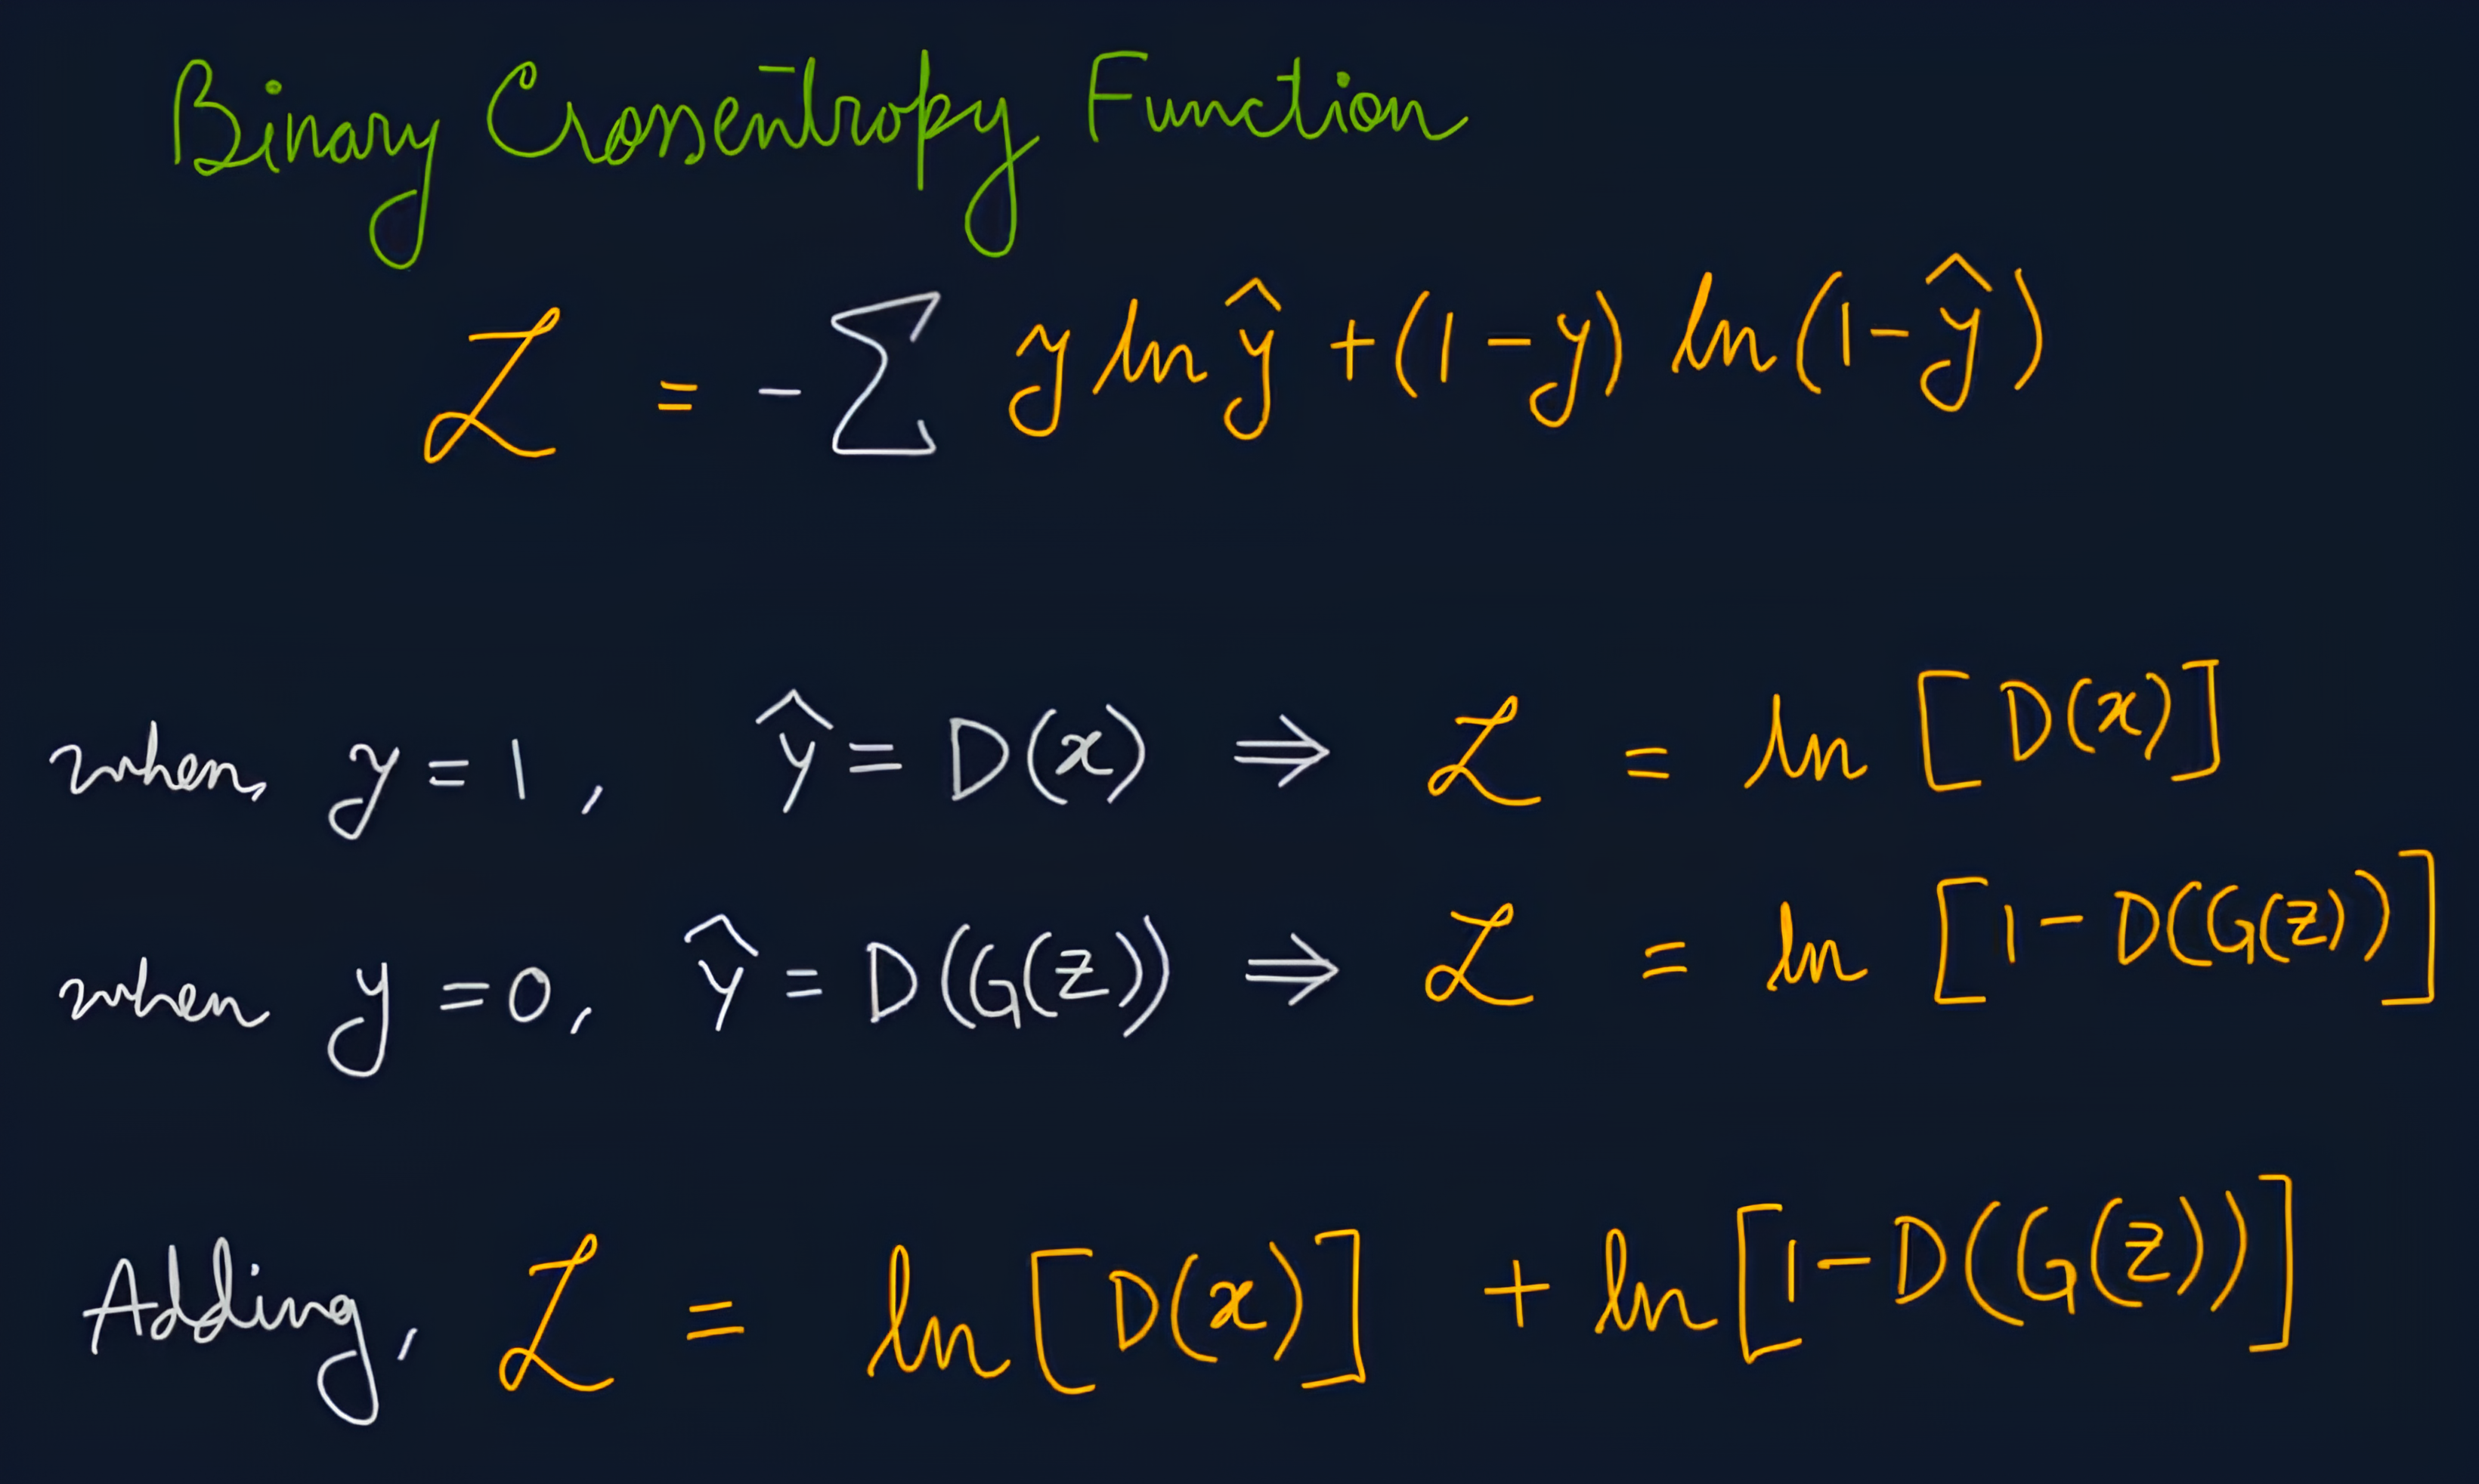 Binary Crossentropy Function
ℒ = -∑ y ln ŷ + (1-y) ln(1-ŷ)
when, y=1, ŷ = D(x) ⇒ ℒ = ln [D(x)]
when y=0, ŷ = D(G(z)) ⇒ ℒ = ln [1-D(G(z))]
Adding, ℒ = ln [D(x)] + ln [1-D(G(z))]